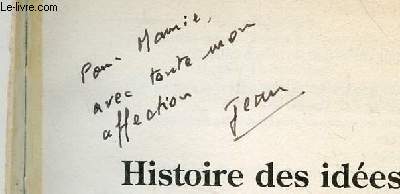 Le-livre.com
Pour Mamie,
avec toute mon
affection
Jean
Histoire des idées